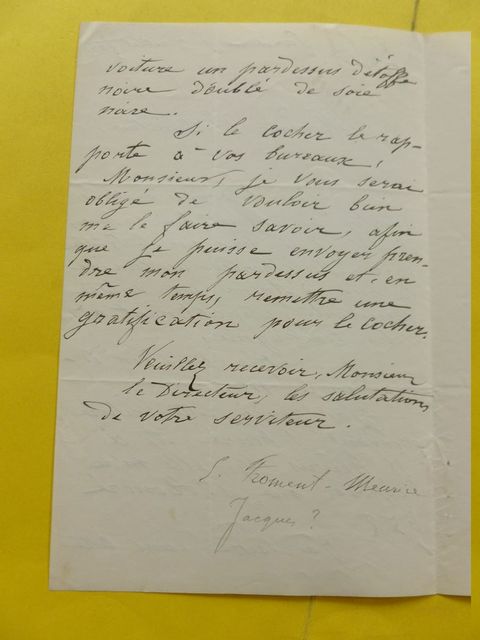 voiture un pardessus d'étoffe
noire doublé de soie
noire.
Si le cocher le rap-
porte à vos bureaux,
Monsieur, je vous serai
obligé de vouloir bien
me le faire savoir, afin
que je puisse envoyer pren-
dre mon pardessus et, en
même temps, remettre une
gratification pour le cocher.
Veuillez recevoir, Monsieur
le Directeur, les salutations
de votre serviteur.
Froment-Meurice
Jacques ?